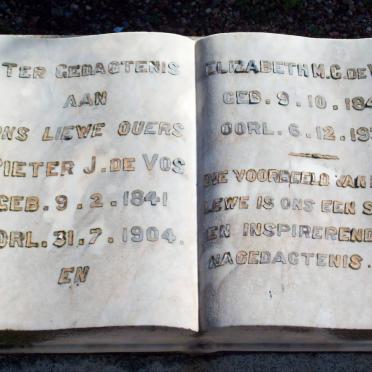 TER GEDAGTENIS
AAN
ONS LIEWE OUERS
PIETER J. DE VOS
GEB. 9. 2. 1841
OORL. 31. 7. 1904.
EN
ELIZABETH M. C. DE
GEB. 9. 10. 184
OORL. 6. 12. 19
VOORBEELD VAN
LEWE IS ONS EEN S
EN INSPIREREND
NAGEDACTENIS.